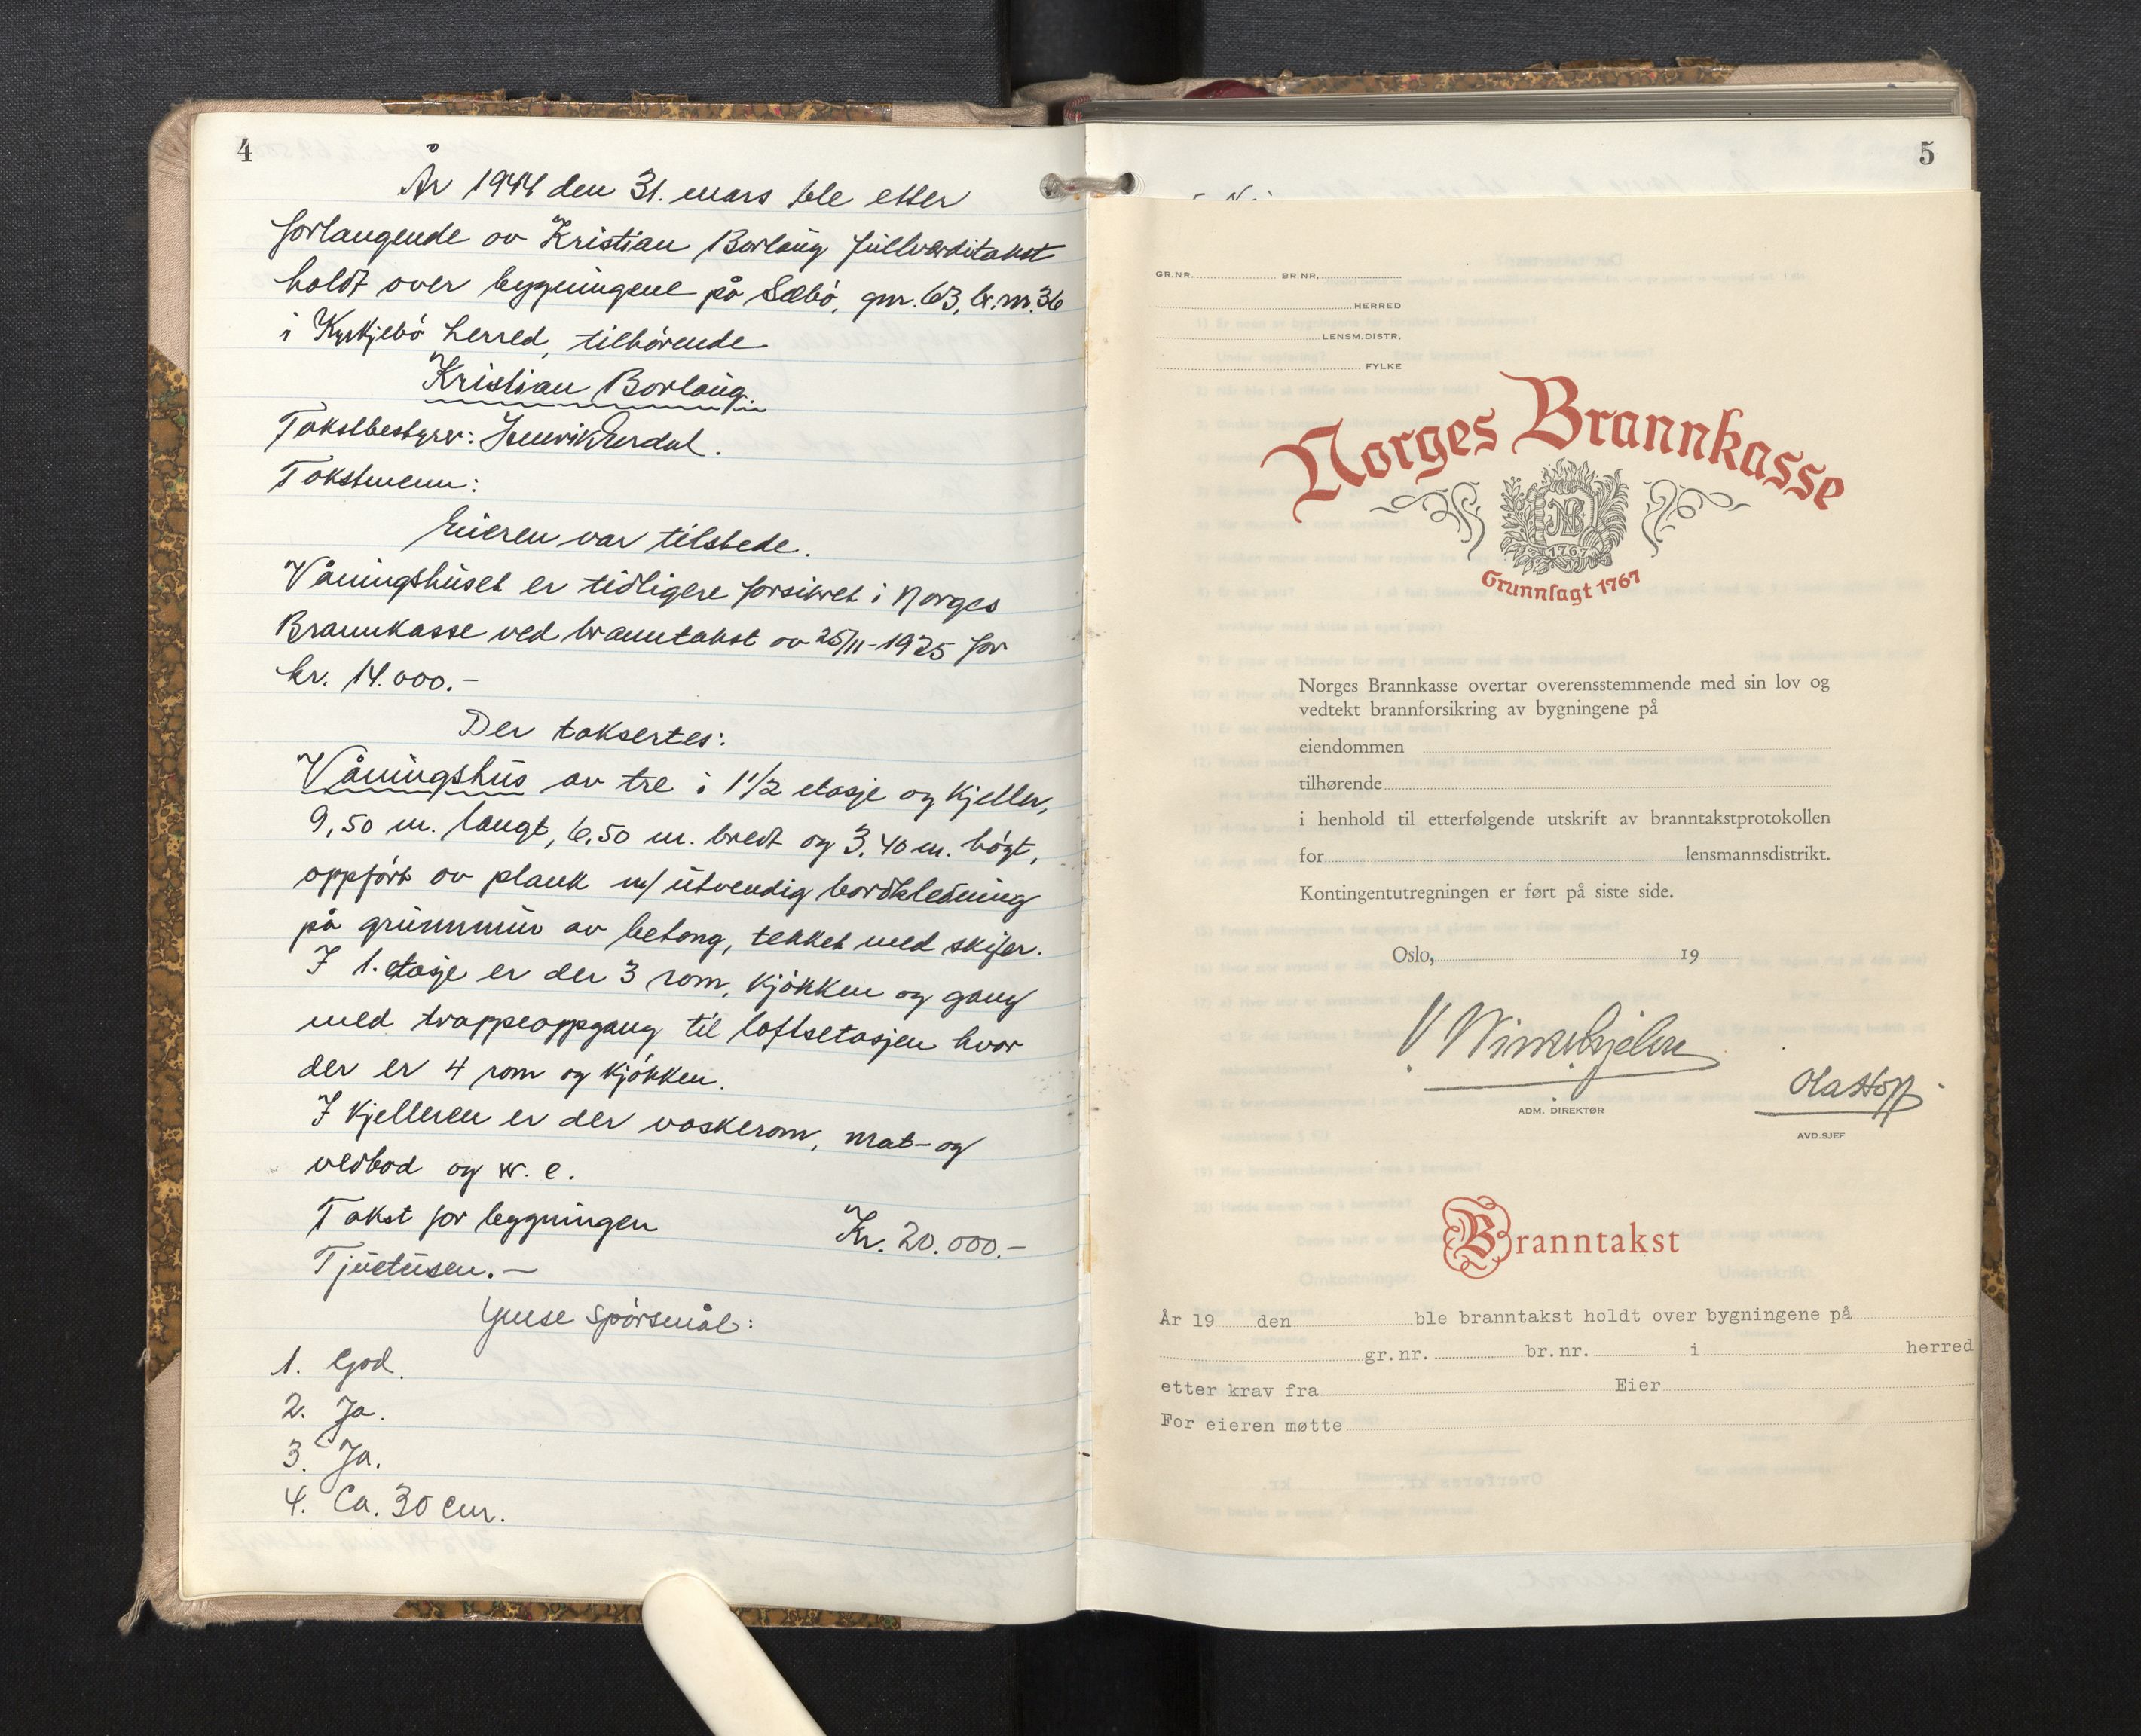 4
År 1944 den 31. mars ble etter
forlangende av Kristian Borlaug fullverditakst
holdt over bygningene på Sæbö, gnr. 63, br.nr. 36
i Kyrkjebö herred, tilhörende
Kristian Borlaug.
Takstbestyrer: Henrik Erdal.
Takstmenn:
Eieren var tilstede.
Våningshuset er tidligere forsikret i Norges
Brannkasse ved branntakst av 25/11-1925 for
kr. 14.000.-
Der taksertes:
Våningshus av tre i 1 1/2 etasje og kjeller,
9,50 m. langt, 6,50 m. bredt og 3,40 m. högt,
oppfört av plank m/ utvendig bordkledning
på grunnmur av betong, tekket med skifer.
I 1. etasje er der 3 rom, kjökken og gang
med trappeoppgang til loftsetasjen hvor
der er 4 rom og kjökken.
I kjelleren er der vaskerom, mat- og
vedbod og w. c.
Takst for bygningen Kr. 20.000.-
Tjuetusen.-
Ymse Spörsmål:
1. God.
2. Ja.
3. Ja.
4. Ca. 30 cm.
5
GR.NR. BR.NR.
HERRED
LENSM.DISTR.
FYLKE
Norges Brannkasse
NB
1767
Grunnlagt 1767
Norges Brannkasse overtar overensstemmende med sin lov og
vedtekt brannforsikring av bygningene på
eiendommen
tilhørende
i henhold til etterfølgende utskrift av branntakstprotokollen
for lensmannsdistrikt.
Kontingentutregningen er ført på siste side.
Oslo, 19
ADM. DIREKTØR
AVD.SJEF
Branntakst
År 19 den ble branntakst holdt over bygningene på
gr.nr. br.nr. i herred
etter krav fra Eier
For eieren møtte